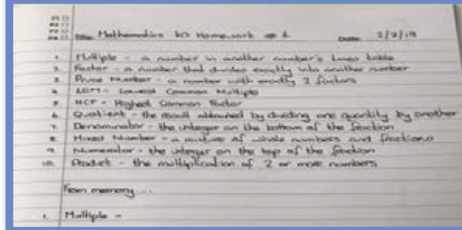 Title: Mathematics KO Homework # 1 Date: 2/9/19
1. Multiple - a number in another number's times table
2. Factor - a number that divides exactly into another number
3. Prime Number - a number with exactly 2 factors
4. LCM - Lowest Common Multiple
5. HCF - Highest Common Factor
6. Quotient - the result obtained by dividing one quantity by another
7. Denominator - the integer on the bottom of the fraction
8. Mixed Number - a mixture of whole numbers and fractions
9. Numerator - the integer on the top of the fraction
10. Product - the multiplication of 2 or more numbers
From memory....
1. Multiple -